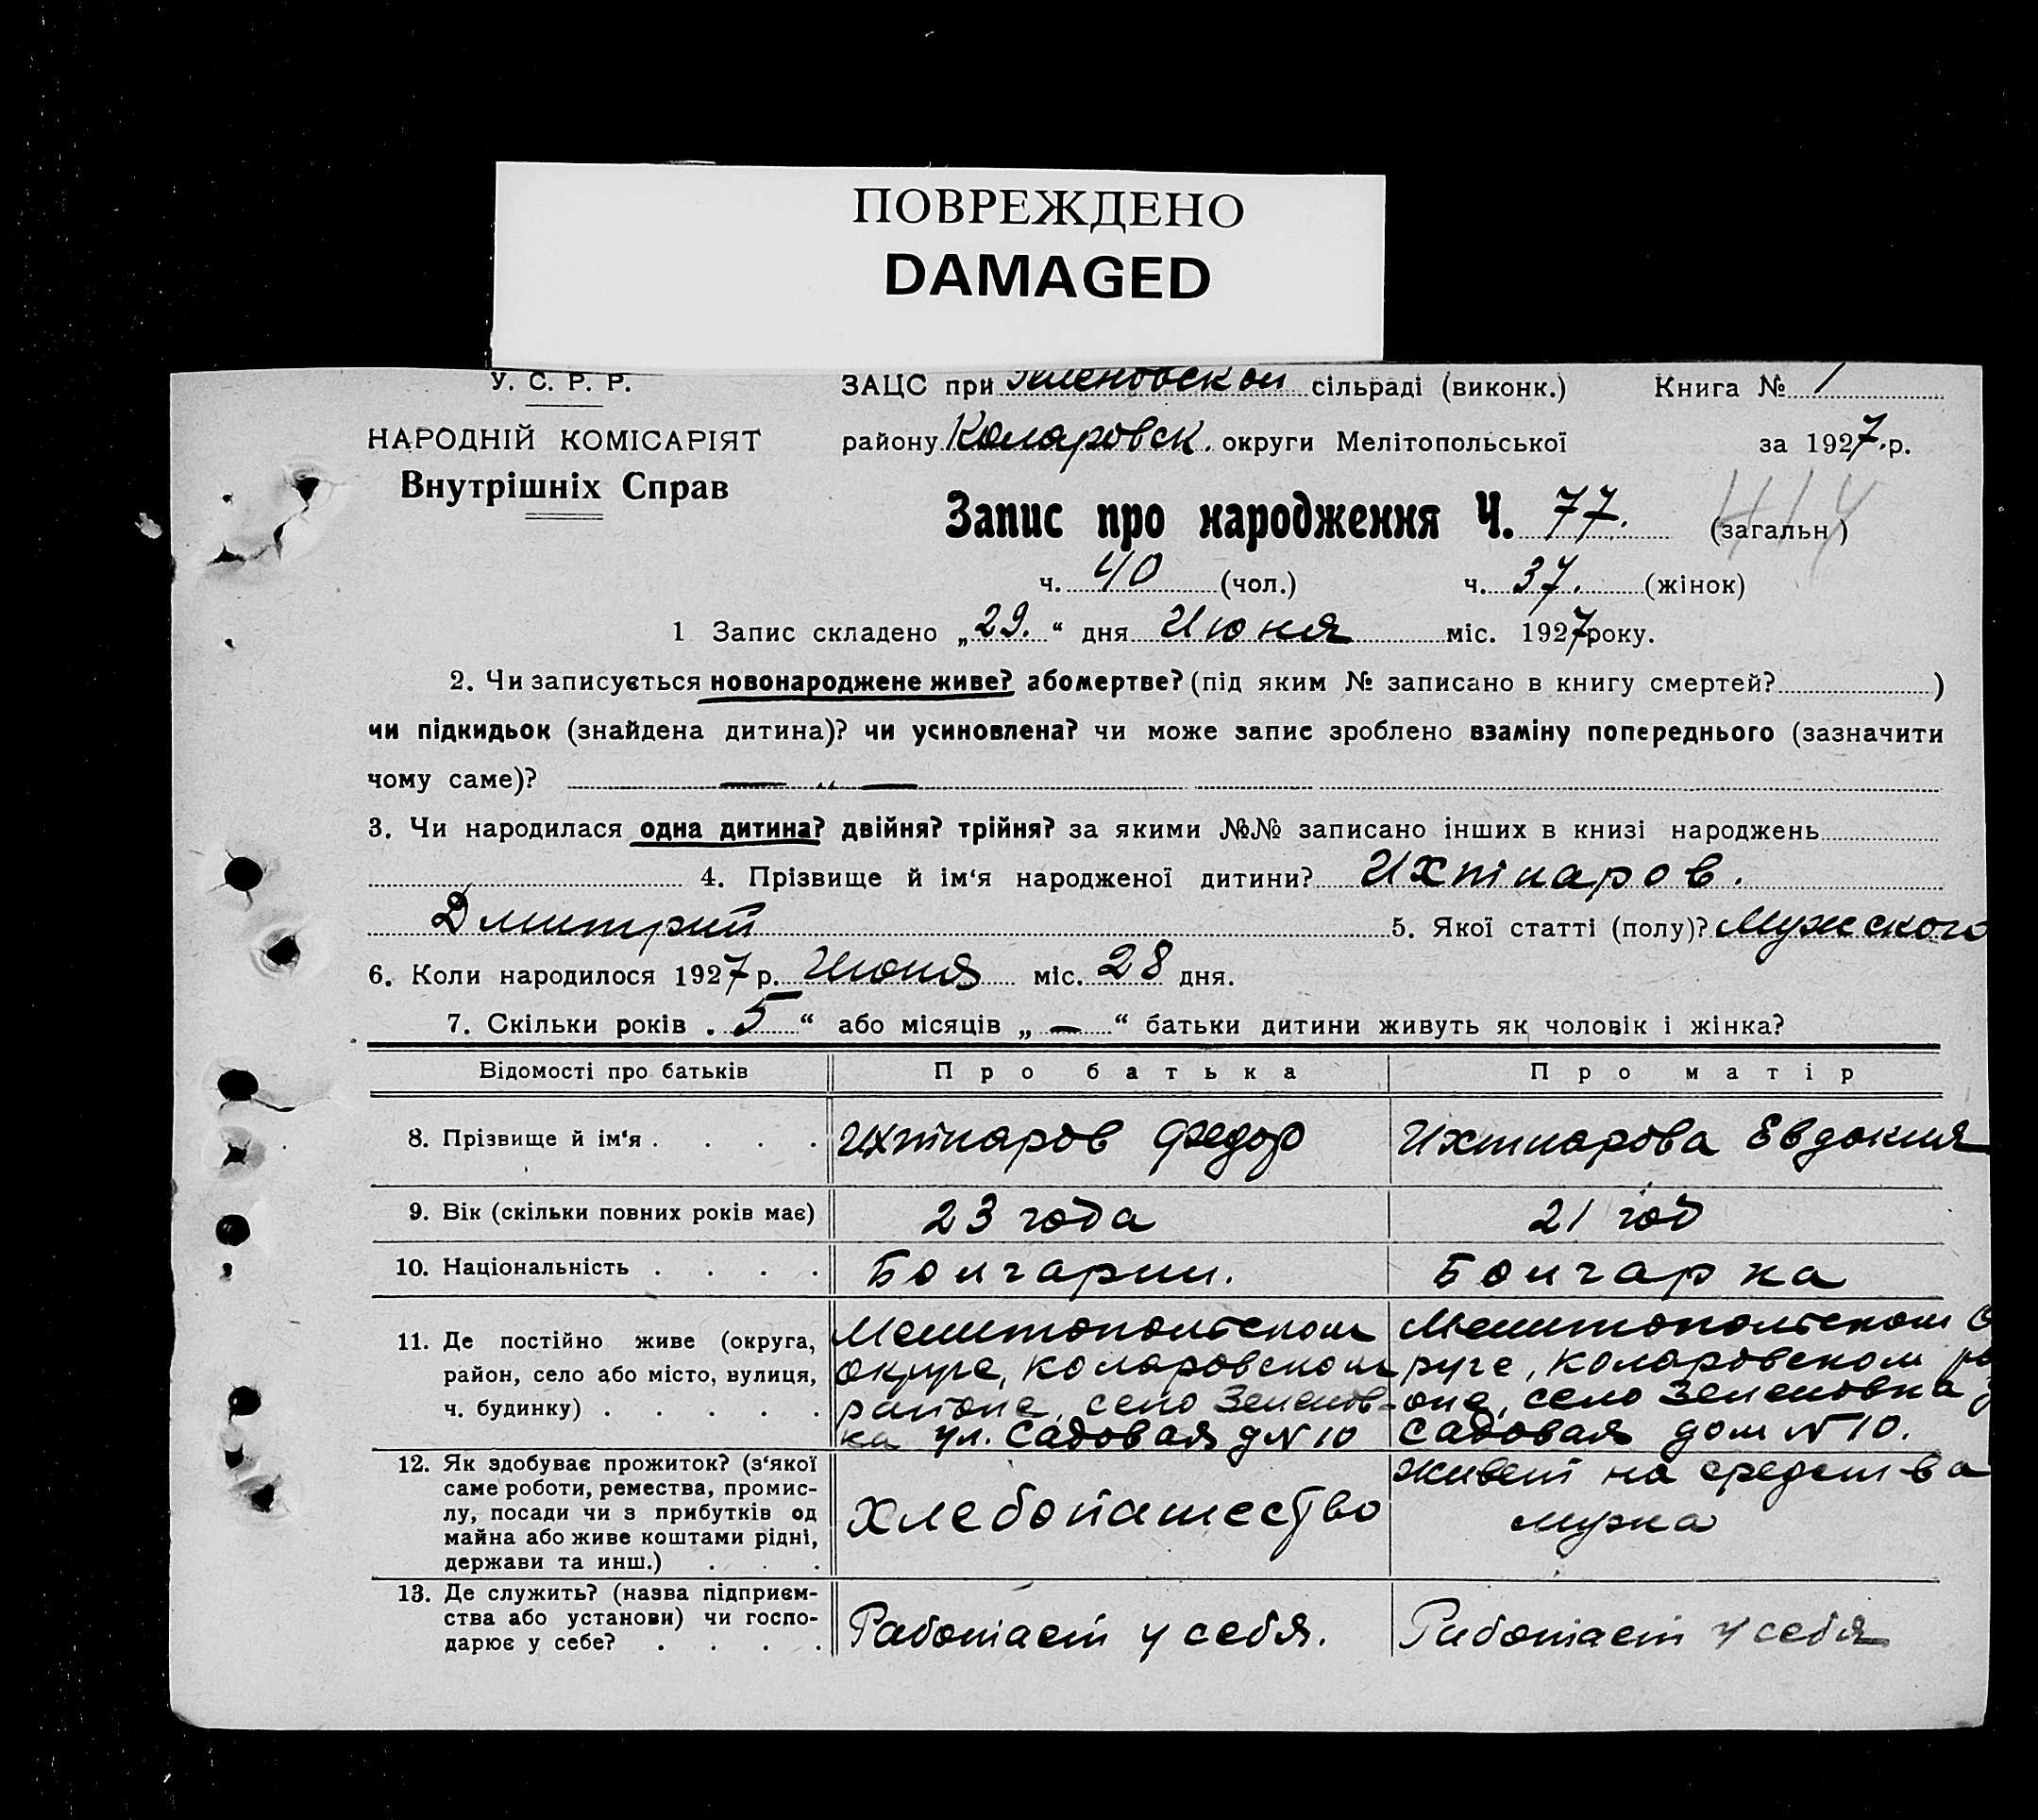 ПОВРЕЖДЕНО
DAMAGED
У. С. Р. Р.
НАРОДНІЙ КОМІСАРІЯТ
Внутрішніх Справ
ЗАЦС при Зеленовской сільраді (виконк.) Книга № 1
району Коларовск. округи Мелітопольської за 1927.р.
Запис про народження Ч. 77. (загальн)
414
ч. 40 (чол.) ч. 37. (жінок)
1 Запис складено „29.“ дня Июня міс. 1927року.
2. Чи записується новонароджене живе? або мертве? (під яким № записано в книгу смертей? )
чи підкидьок (знайдена дитина)? чи усиновлена? чи може запис зроблено взаміну попереднього (зазначити
чому саме)? — „ —
3. Чи народилася одна дитина? двійня? трійня? за якими №№ записано інших в книзі народжень
4. Прізвище й ім‘я народженої дитини? Ихтиаров.
Дмитрий 5. Якої статті (полу)? Мужского
6. Коли народилося 1927 р. Июня міс. 28 дня.
7. Скільки років . 5 “ або місяців „ — “ батьки дитини живуть як чоловік і жінка?
Відомості про батьків Про батька Про матір
8. Прізвище й ім‘я . . . . Ихтиаров Федор Ихтиарова Евдокия
9. Вік (скільки повних років має) 23 года 21 год
10. Національність . . . . Болгарин. Болгарка
11. Де постійно живе (округа, район, село або місто, вулиця, ч. будинку) . . . . .
Мелитопольском
округе, Коларовском
районе, село Зеленов-
ка ул. Садовая д N 10
Мелитопольском о
руге, Коларовском ра
оне, село Зеленовка у
Садовая дом N 10.
12. Як здобуває прожиток? (з‘якої
саме роботи, ремества, промис-
лу, посади чи з прибутків од
майна або живе коштами рідні,
держави та инш.) . . .
Хлебопашество
Живет на средства
мужа
13. Де служить? (назва підприєм-
ства або установи) чи госпо-
дарює у себе? . . . .
Работает у себя.
Работает у себя